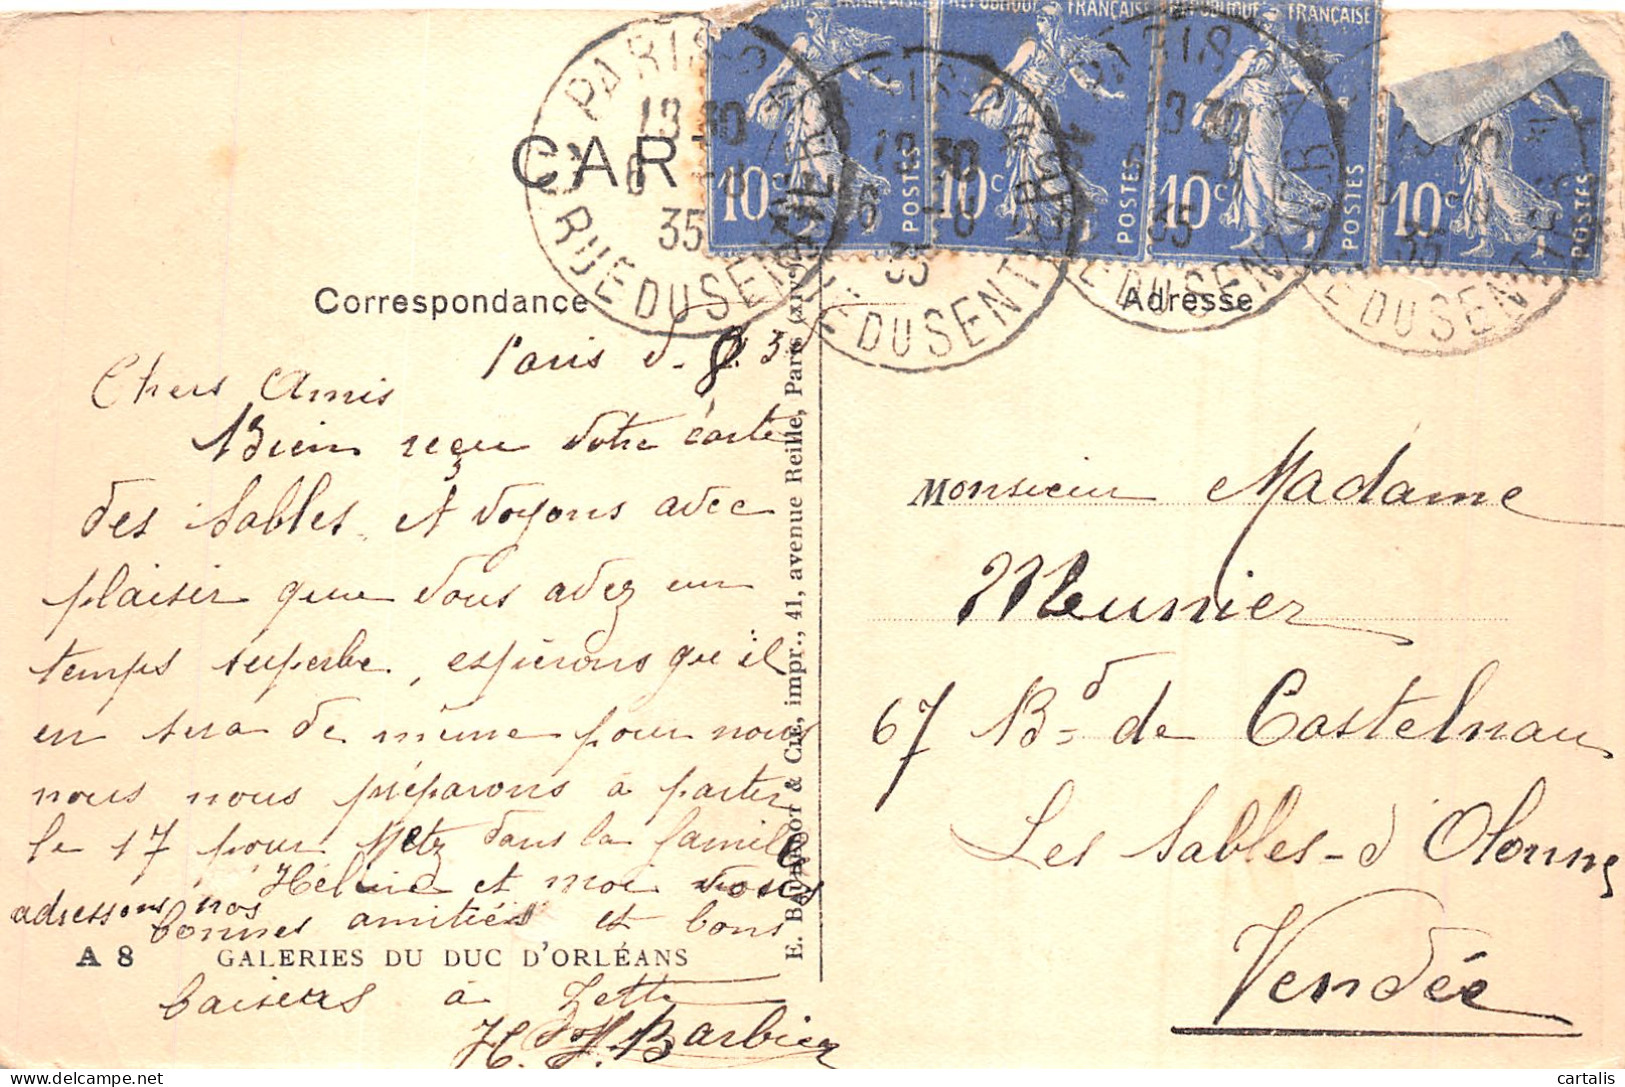 RÉPUBLIQUE FRANÇAISE
10c POSTES
10c POSTES
10c POSTES
10c POSTES
PARIS
RUE DU SENTIER
13 30
6 - 8
35
CAR
Correspondance
Adresse
Paris
Chers Amis
Bien reçu votre carte
des Sables et voyons avec
plaisir que vous avez un
temps superbe, espérons qu'il
en sera de même pour nous
nous nous préparons à partir
le 17 pour Metz dans la famille
Hélène et moi vous
adressons nos
bonnes amitiés et bons
A 8 GALERIES DU DUC D'ORLÉANS
baisers à Zette
Barbier
E. BAUDELOT & CIE, impr., 41, avenue Reille, Paris (XIVe)
Monsieur Madame
Meunier
67 Bd de Castelnau
Les Sables-d'Olonne
Vendée
cartalis